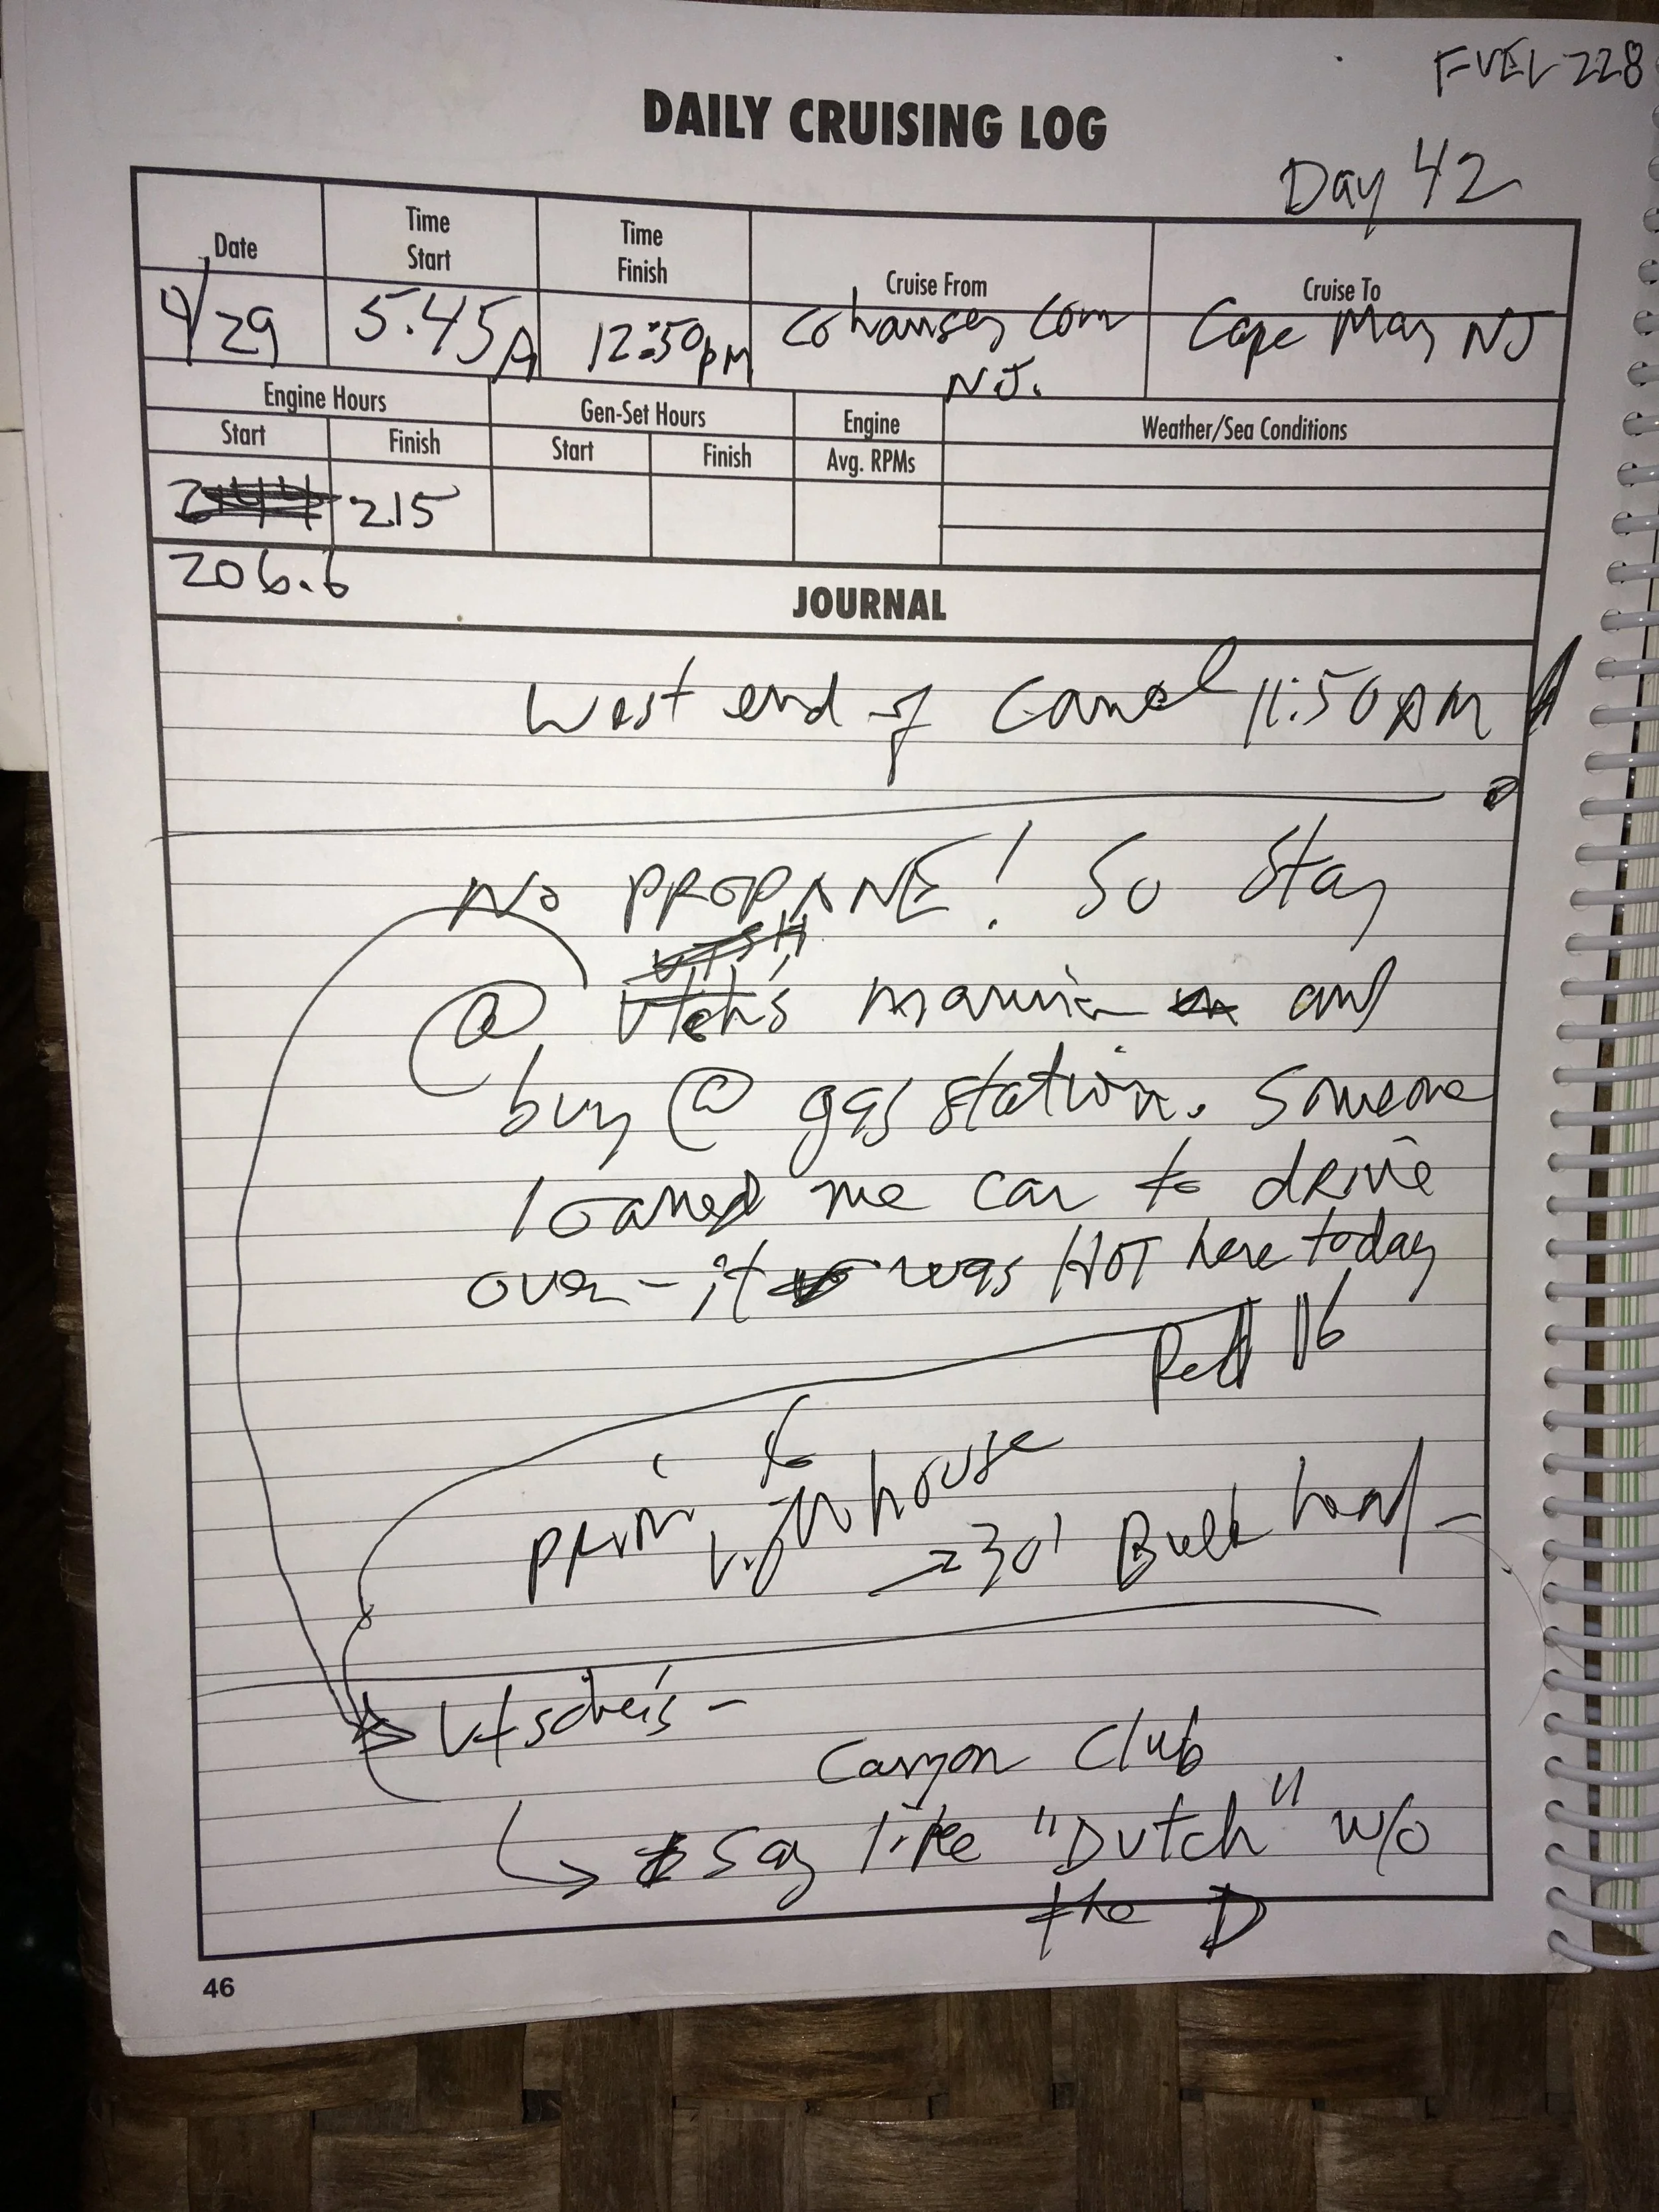 FUEL 228
DAILY CRUISING LOG
Day 42
Date
Time Start
Time Finish
Cruise From
Cruise To
4/29
5.45A
12:50pM
Cohansey
N.J.
Cape May NJ
Engine Hours
Gen-Set Hours
Engine
Weather/Sea Conditions
Start
Finish
Start
Finish
Avg. RPMs
215
206.6
JOURNAL
West end of Canal 11:50 AM
No PROPANE! So Stay
@ Utch's marina and
buy @ gas station. Someone
loaned me car to drive
over - it was HOT here today
Red 16
to
Lighthouse
230' Bulk head -
Utsches -
Canyon Club
say like "Dutch" w/o
the D
46